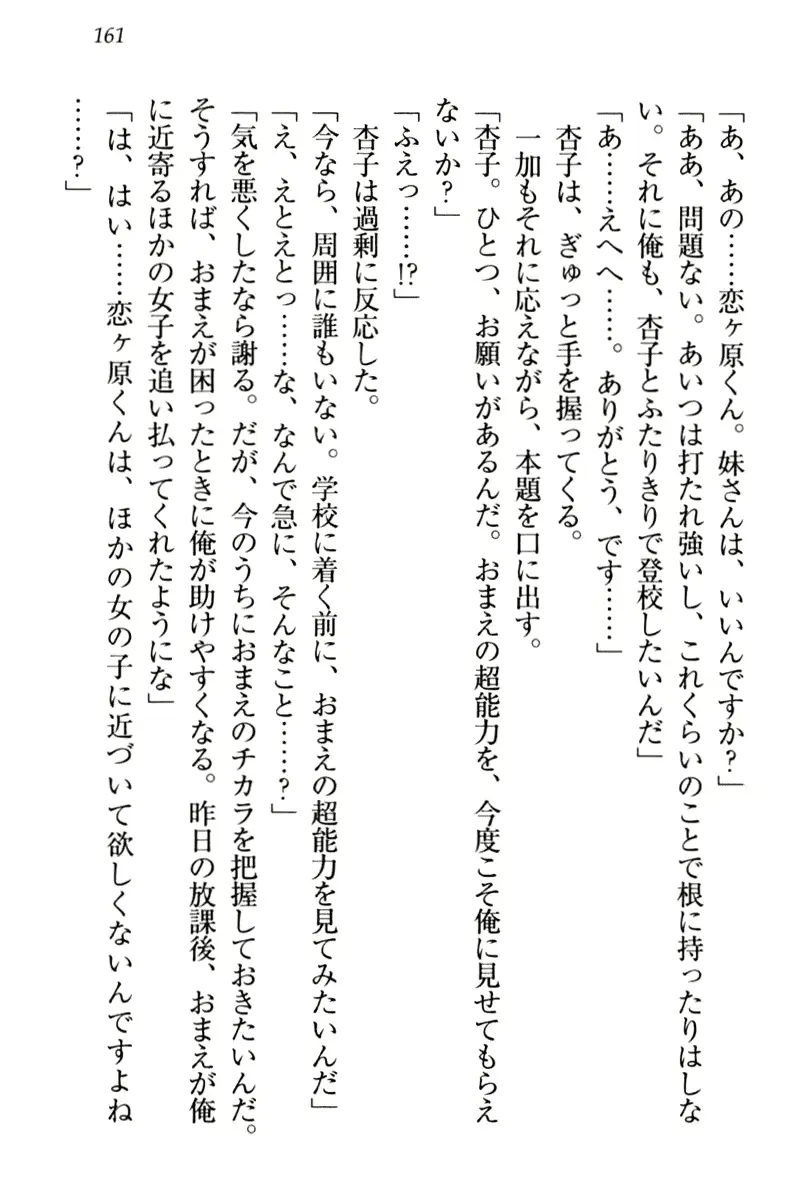 161
「あ、あの……恋ヶ原くん。妹さんは、いいんですか?」
「ああ、問題ない。あいつは打たれ強いし、これくらいのことで根に持ったりはしな
い。それに俺も、杏子とふたりきりで登校したいんだ」
「あ……えへへ……。ありがとう、です……」
杏子は、ぎゅっと手を握ってくる。
一加もそれに応えながら、本題を口に出す。
「杏子。ひとつ、お願いがあるんだ。おまえの超能力を、今度こそ俺に見せてもらえ
ないか?」
「ふえっ……!?」
杏子は過剰に反応した。
「今なら、周囲に誰もいない。学校に着く前に、おまえの超能力を見てみたいんだ」
「え、えとえとっ……な、なんで急に、そんなこと……?」
「気を悪くしたなら謝る。だが、今のうちにおまえのチカラを把握しておきたいんだ。
そうすれば、おまえが困ったときに俺が助けやすくなる。昨日の放課後、おまえが俺
に近寄るほかの女子を追い払ってくれたようにな」
「は、はい……恋ヶ原くんは、ほかの女の子に近づいて欲しくないんですよね
……?」